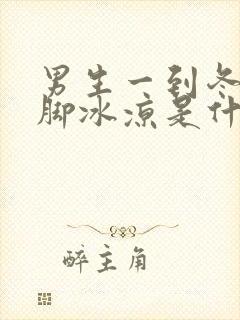 男生一到冬
脚冰凉是什
醉主角